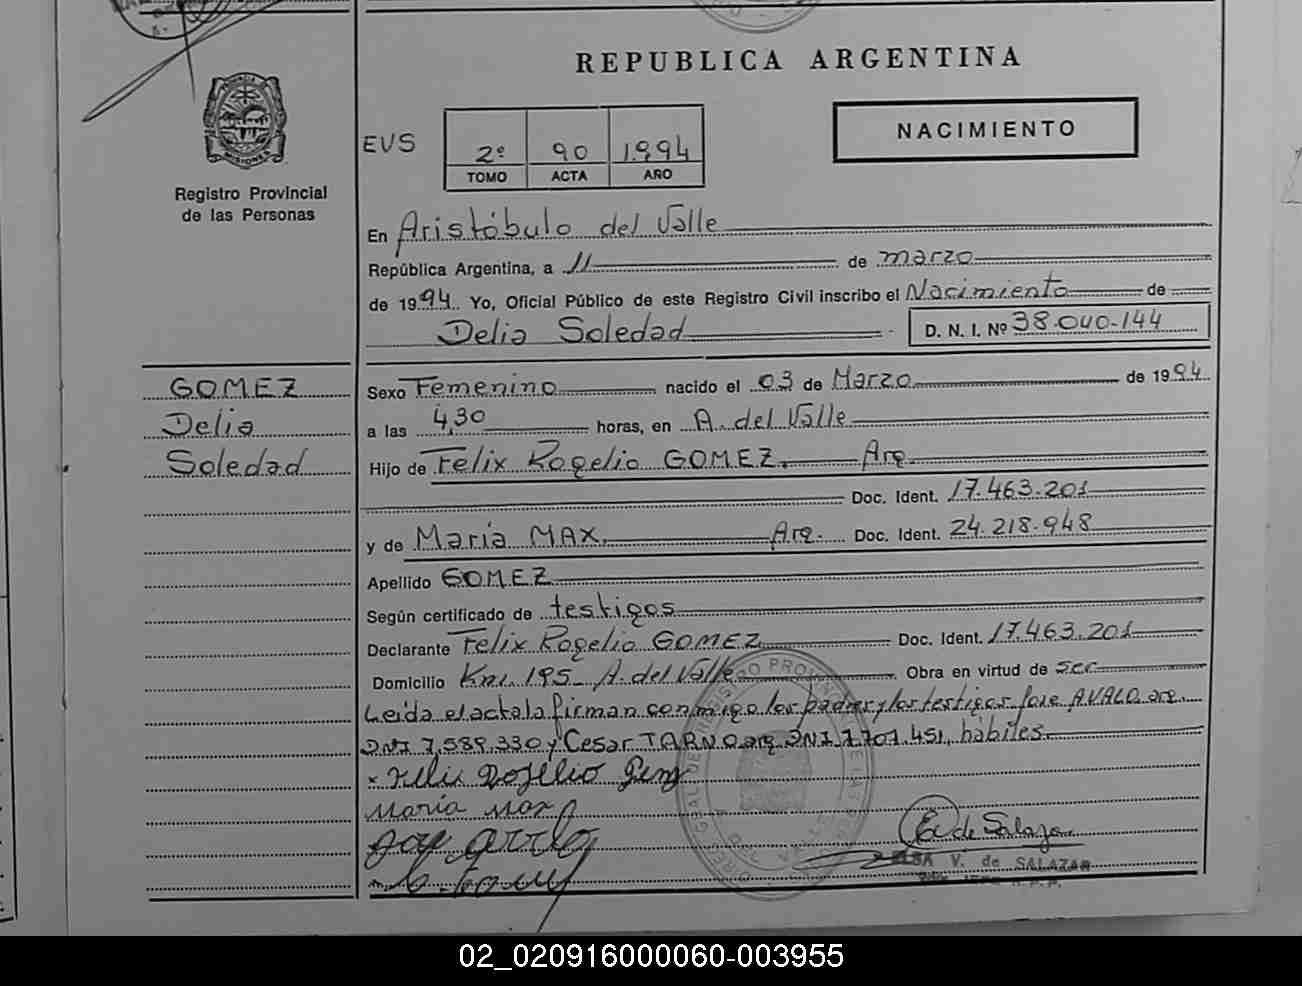 REPUBLICA ARGENTINA
PROVINCIA
MISIONES
Registro Provincial
de las Personas
EVS
2º 90 1.994
TOMO ACTA AÑO
NACIMIENTO
En Aristóbulo del Valle
República Argentina, a 11 de marzo
de 1994. Yo, Oficial Público de este Registro Civil inscribo el Nacimiento de
Delia Soledad D. N. I. Nº 38.040.144
GOMEZ
Delia
Soledad
Sexo Femenino nacido el 03 de Marzo de 1994
a las 4,30 horas, en A. del Valle
Hijo de Felix Rogelio GOMEZ. Arg.
Doc. Ident. 17.463.201
y de Maria MAX. Arg. Doc. Ident. 24.218.948
Apellido GOMEZ
Según certificado de testigos
Declarante Felix Rogelio GOMEZ Doc. Ident. 17.463.201
Domicilio Km. 195 A. del Valle Obra en virtud de ser
Leida el acta la firman conmigo los padres y los testigos Jose AVALO arg.
DNI 7.589.330 y Cesar TARNO arg DNI 7.707.451, hábiles.
x Felix Rogelio
Maria Max
E de Salazar
ELSA V. de SALAZAR
02_020916000060-003955